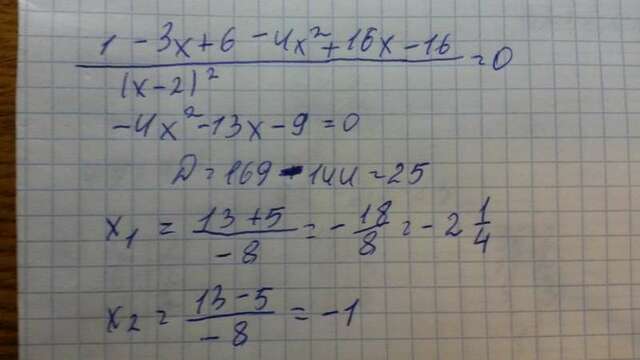 1 - 3x + 6 - 4x² + 16x - 16
/ (x - 2)² = 0
-4x² - 13x - 9 = 0
D = 169 - 144 = 25
x₁ = (13 + 5) / -8 = - 18/8 = - 2 1/4
x₂ = (13 - 5) / -8 = -1